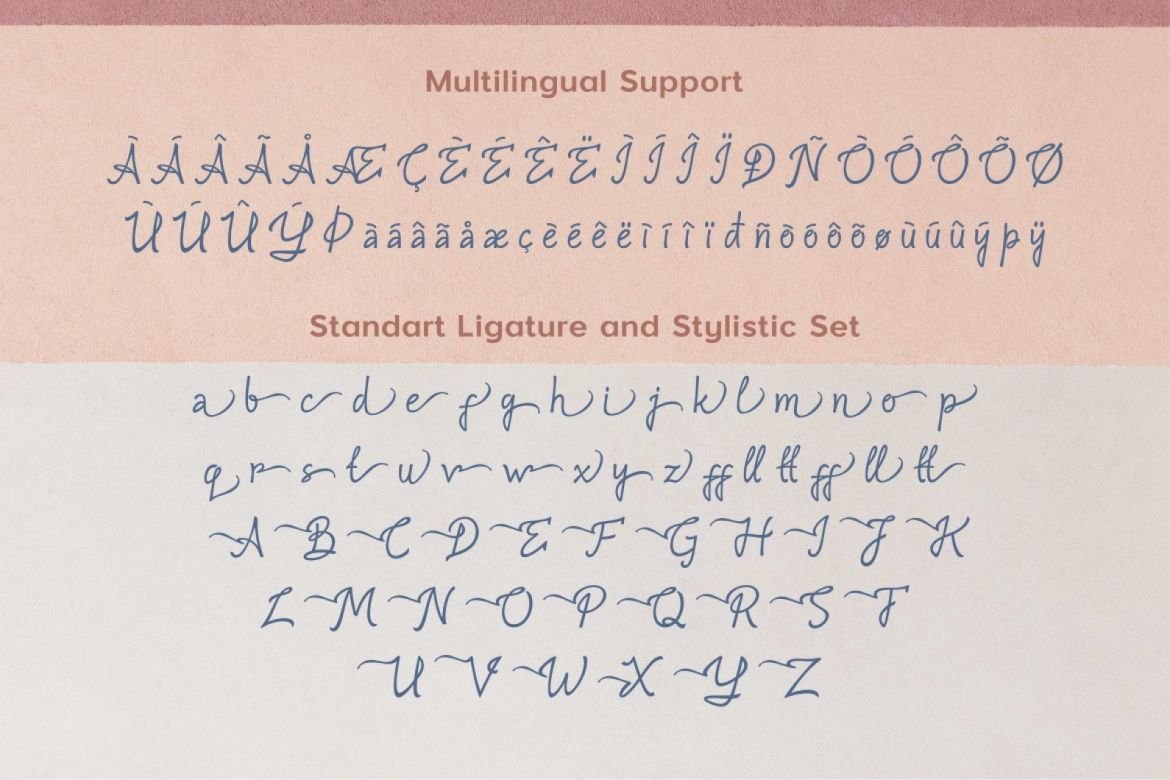 Multilingual Support
ÀÁÂÃÅÆÇÈÉÊËÌÍÎÏÐÑÒÓÔÕØ
ÙÚÛÝÞàáâãåæçèéêëìíîïđñòóôõøùúûýþÿ
Standart Ligature and Stylistic Set
a b c d e f g h i j k l m n o p
q r s t u v w x y z ff ll tt ff ll tt
A B C D E F G H I J K
L M N O P Q R S T
U V W X Y Z